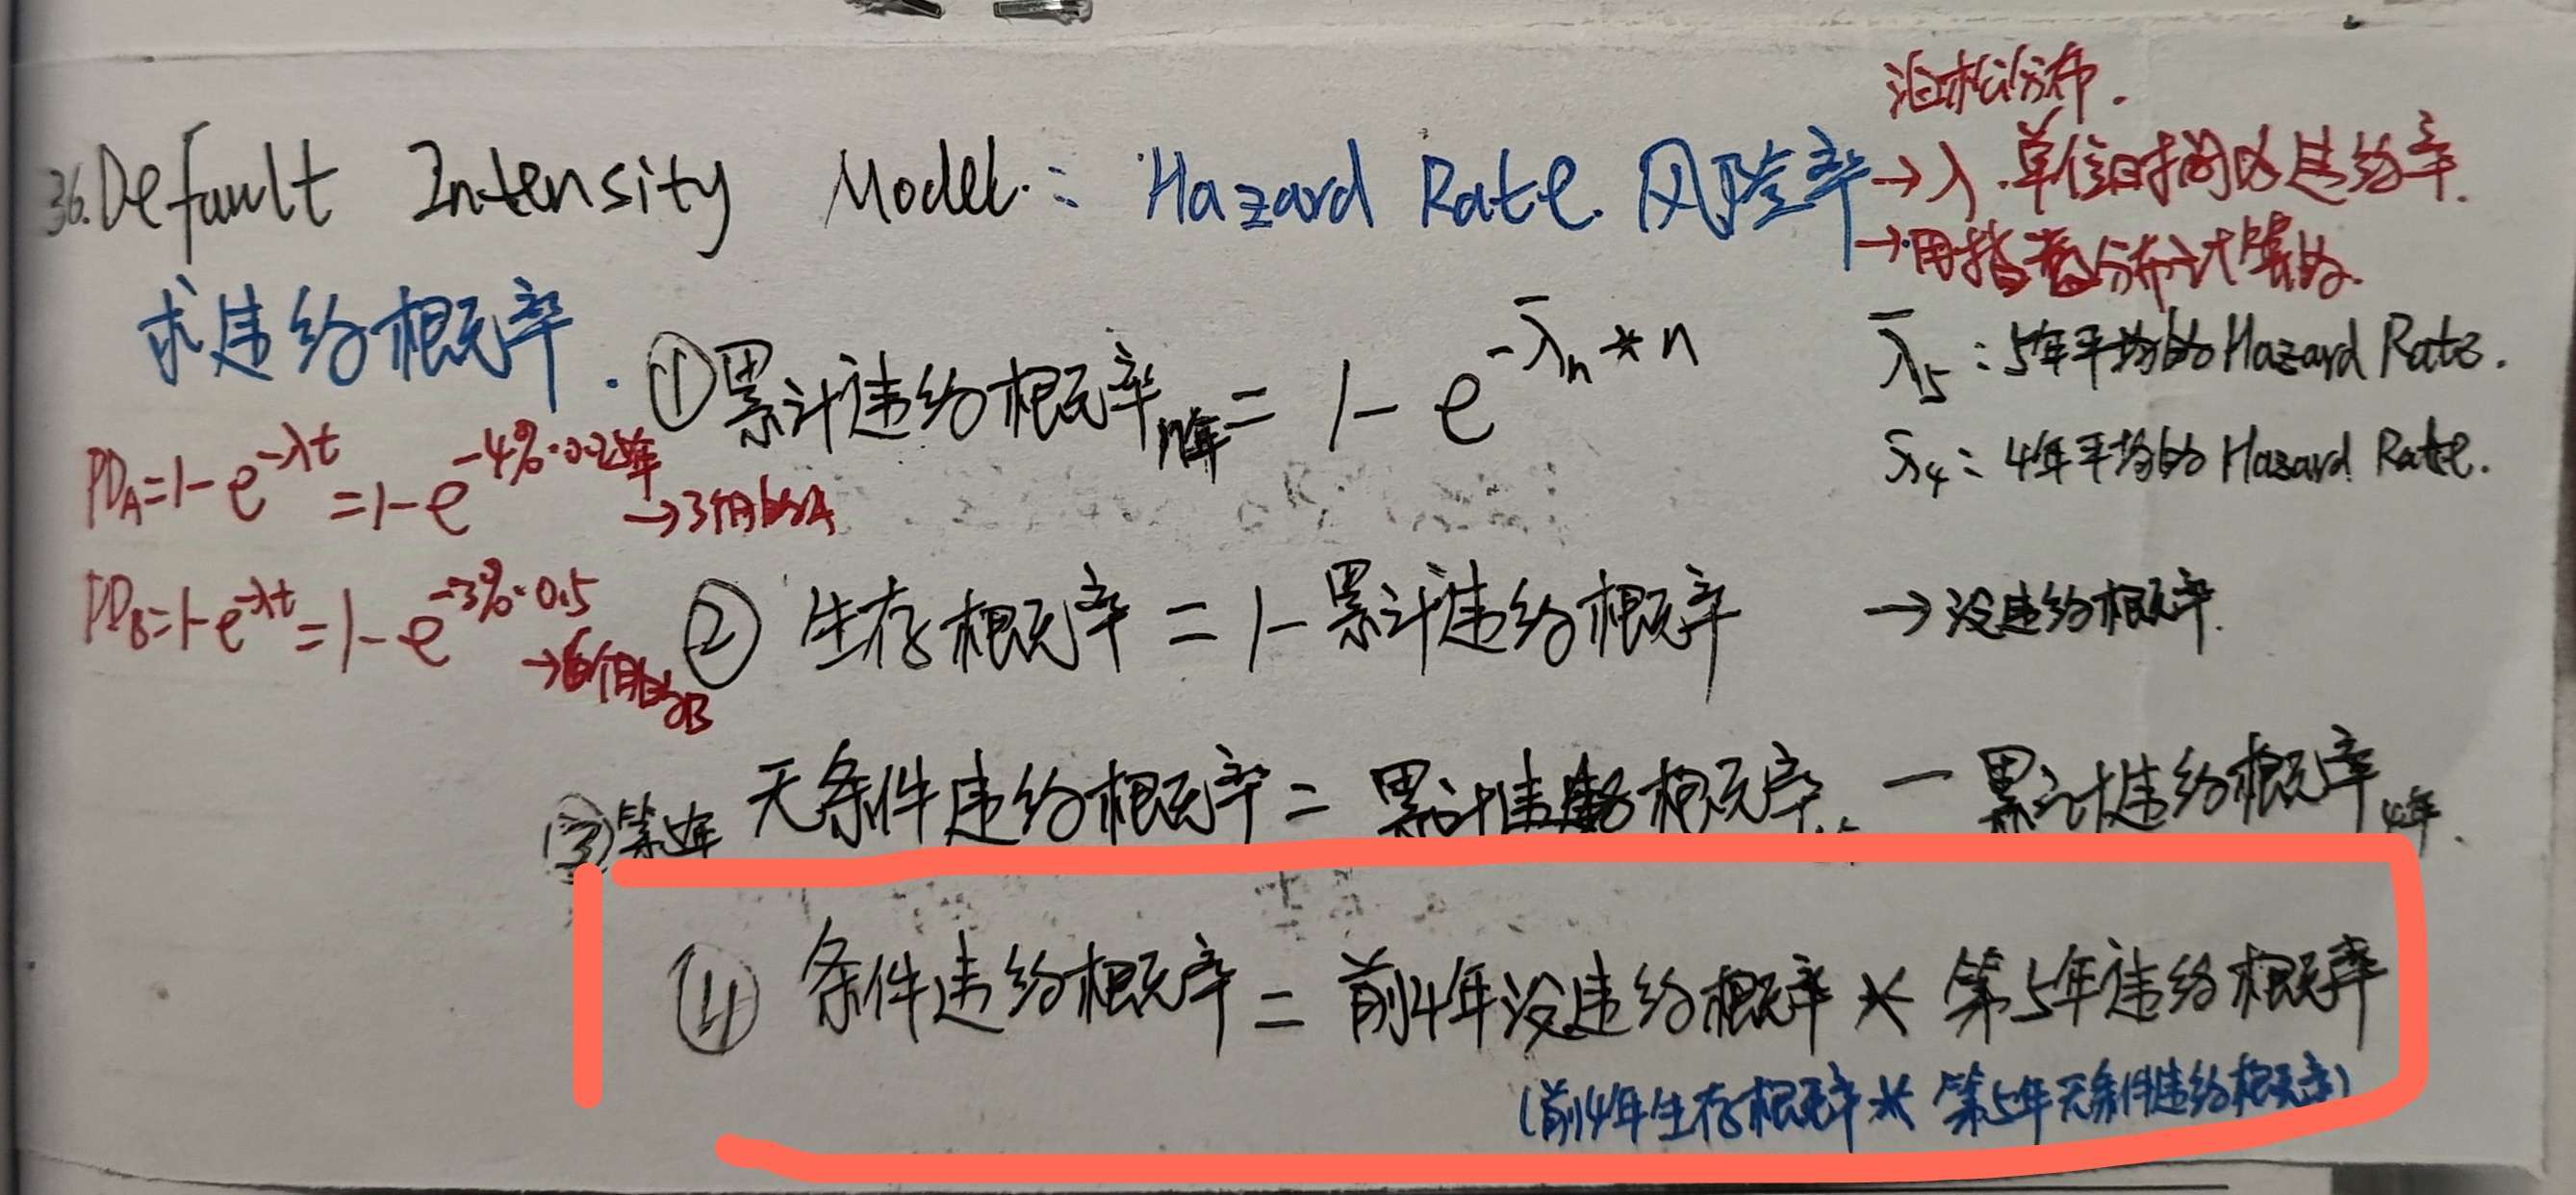 泊松分布.
36.Default Intensity Model: Hazard Rate 风险率 → λ 单位时间的违约率.
→用指数分布计算的.
求违约概率.
①累计违约概率n年 = 1 - e^-λ̄n * n
λ̄5:5年平均的Hazard Rate.
λ̄4:4年平均的Hazard Rate.
PDA=1-e^-λt =1-e^-4%·0.25年
→3个月的A
②生存概率 = 1-累计违约概率 →没违约概率.
PDB=1-e^-λt=1-e^-3%·0.5
→6个月的B
③第5年 无条件违约概率 = 累计违约概率 - 累计违约概率4年.
④条件违约概率 = 前4年没违约概率 * 第5年违约概率
(前4年生存概率 * 第5年无条件违约概率)